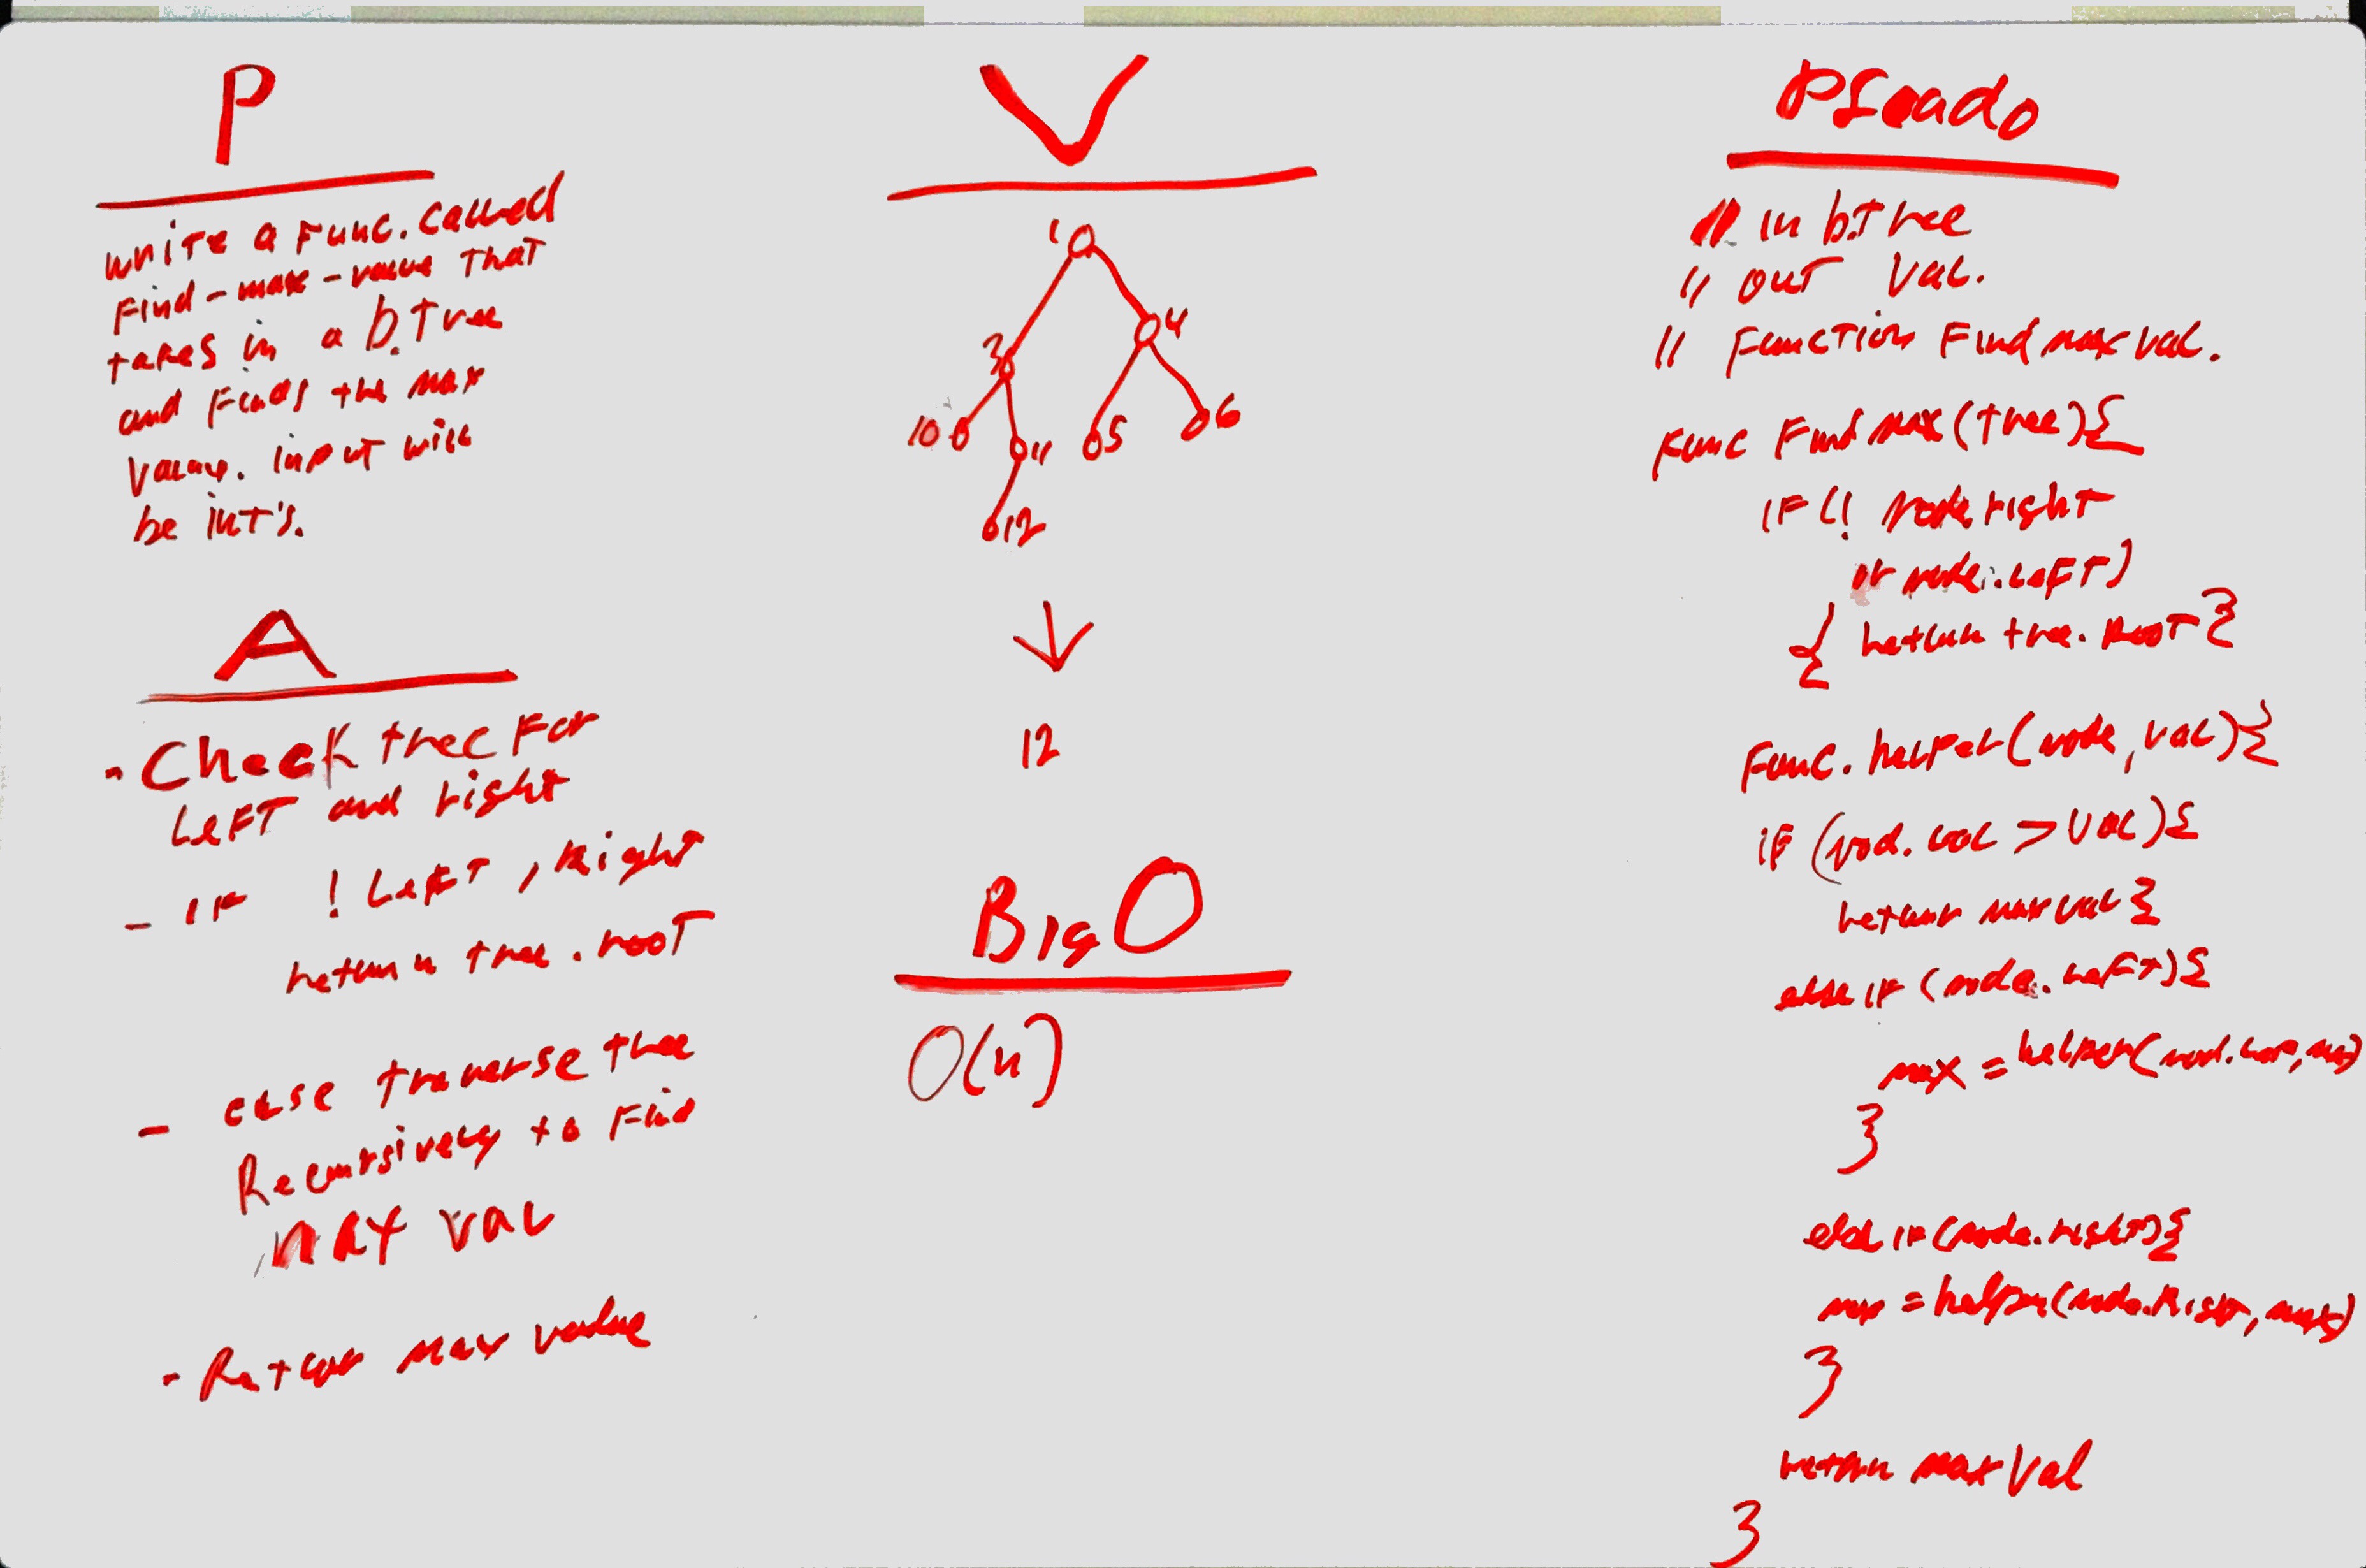 P
write a Func. called
Find-max-value that
takes in a b.Tree
and Finds the max
value. input will
be INT's.
A
- Check tree For
LeFT and right
- IF ! LeFT, Right
return tree.rooT
- else traverse tree
Recursively to Find
MAX VAL
- Return max value
V
1
3
4
10
11
5
6
12
12
Big O
O(n)
PSeudo
// In b.Tree
// OUT VAL.
// Function Find max Val.
Func Find max (tree){
IF (! Node.right
or node.LeFT)
{ return tree.RooT }
Func. helper(node, val){
if (nod.val > VAL){
return max val }
else iF (node.LeFT){
max = helper(nod.LeFT, max)
}
else iF (node.right){
max = helper(node.Right, max)
}
return max Val
}